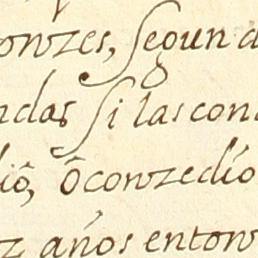 onzes, segun d
ndas si las con
dió, ô conzedio
z años enton